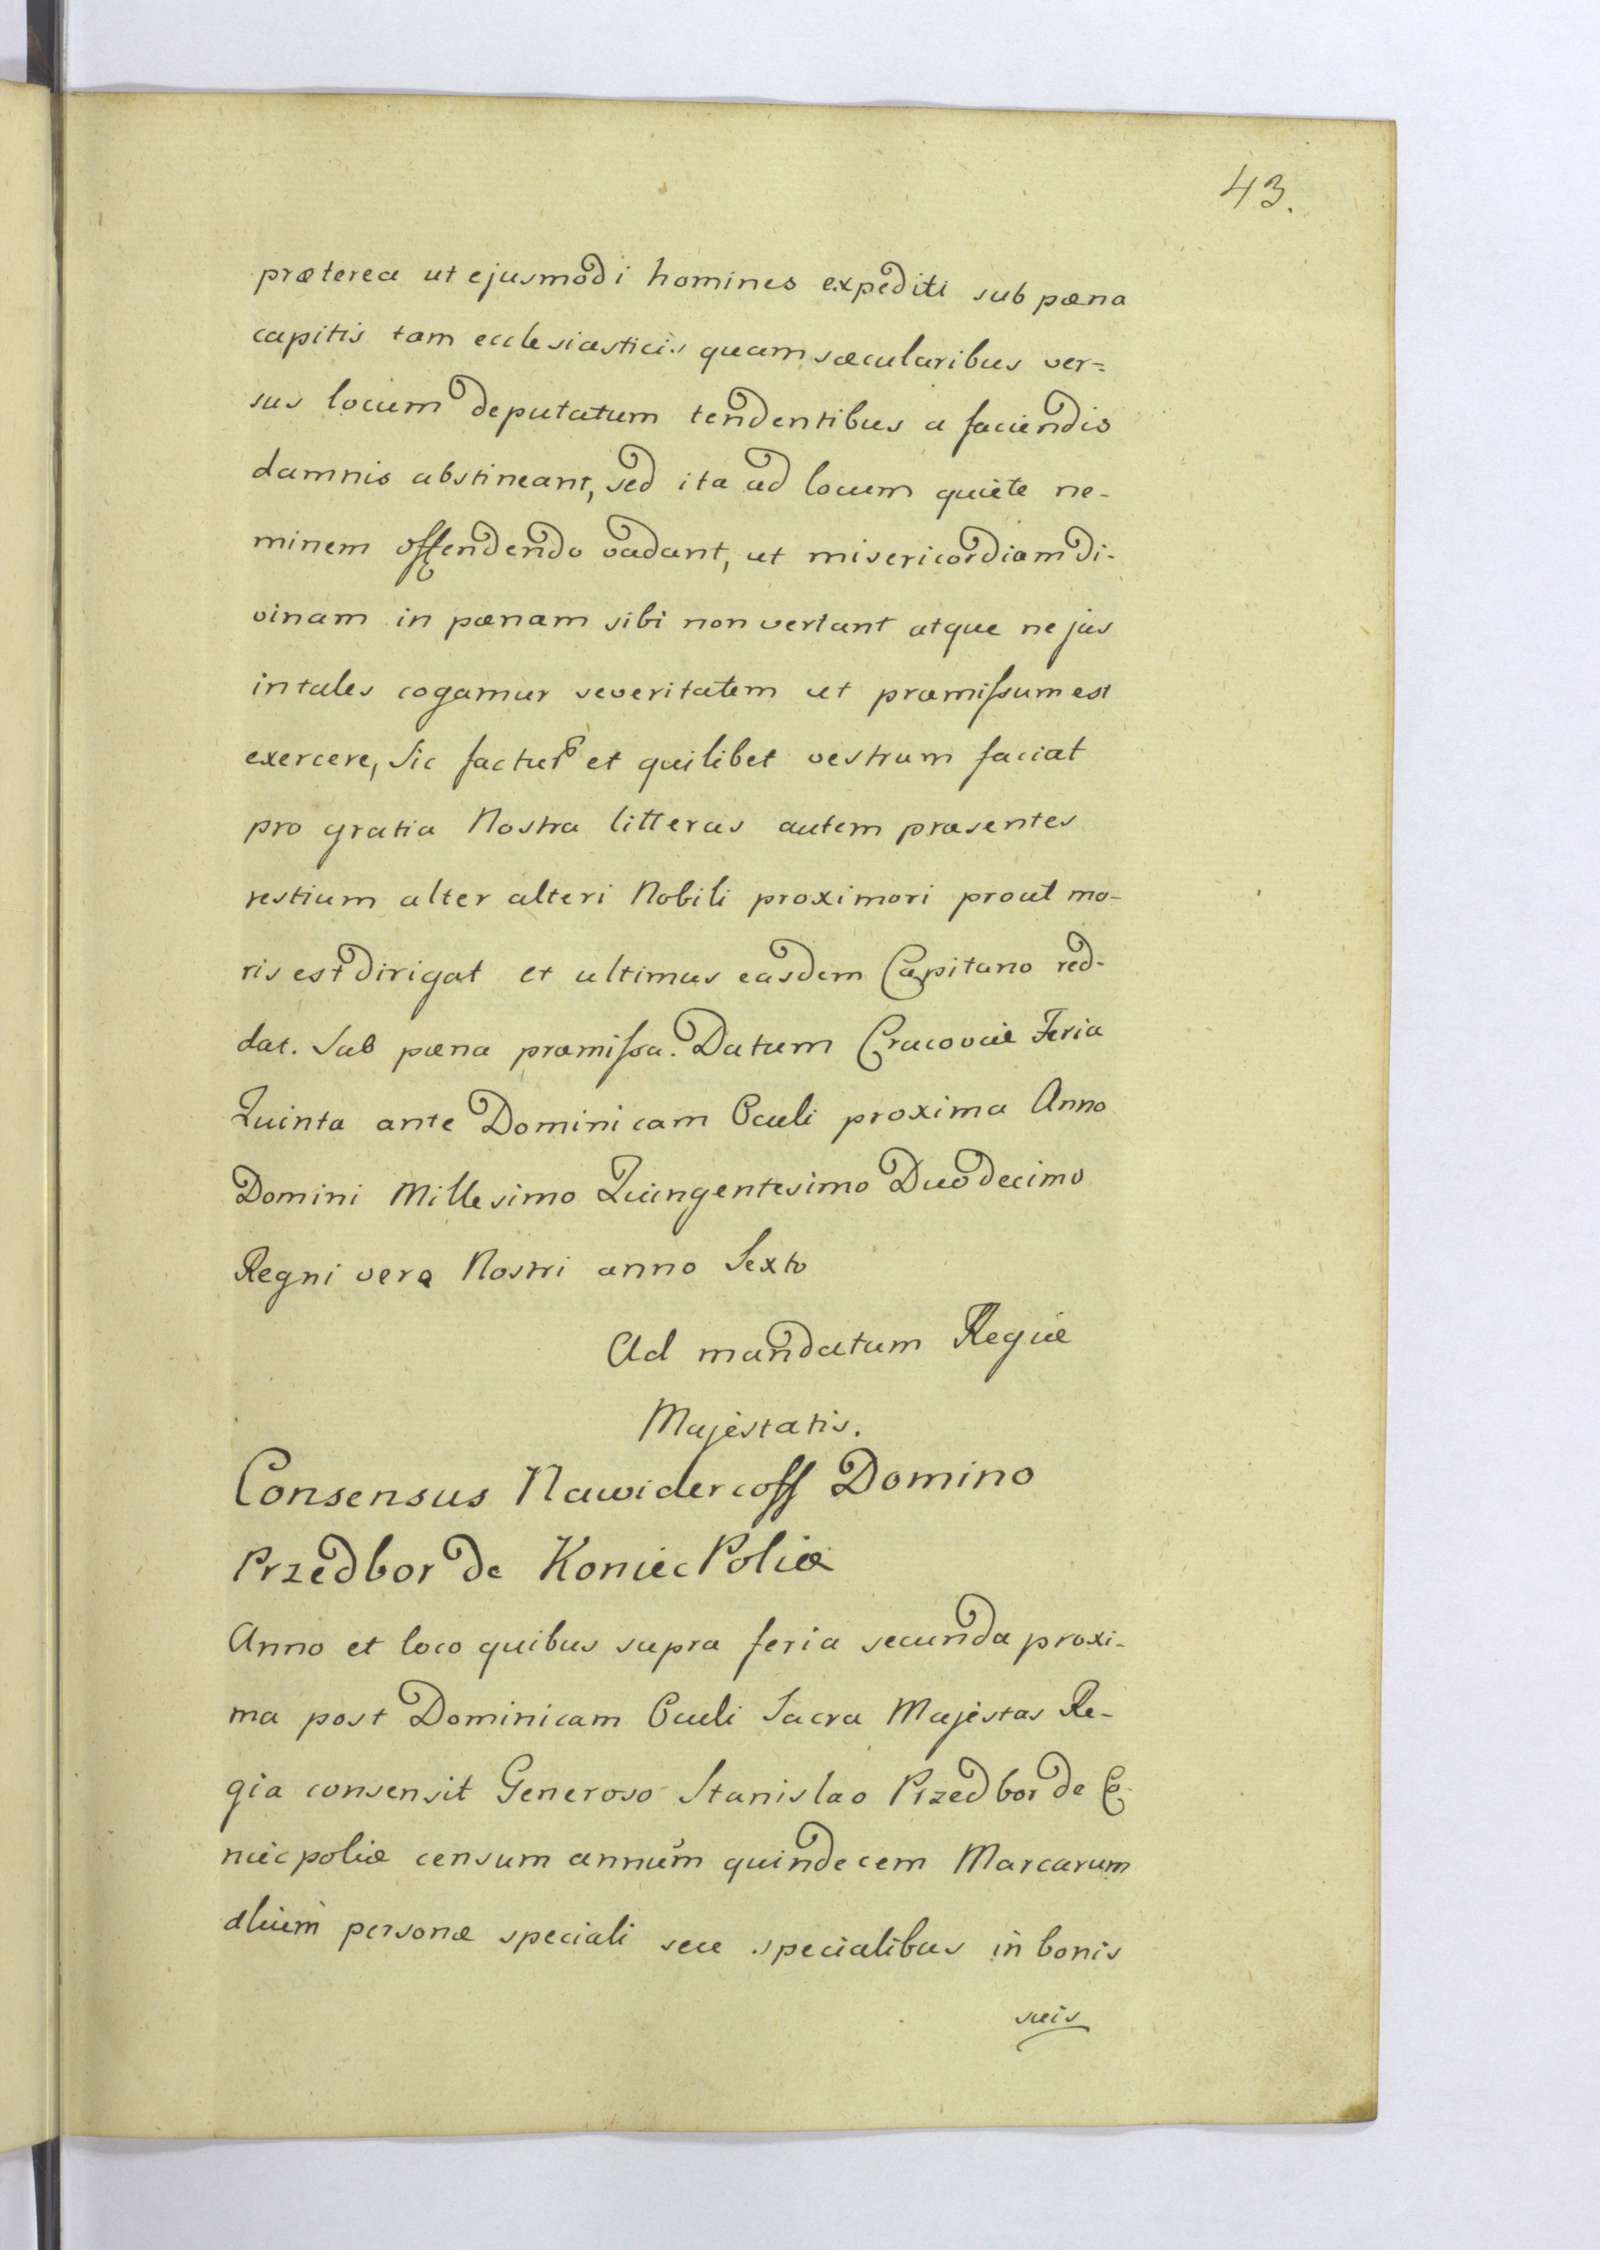 43.
præterea ut ejusmodi homines expediti sub pœna
capitis tam ecclesiasticis quam sæcularibus ver=
sus locum deputatum tendentibus a faciendis
damnis abstineant, sed ita ad locum quiete ne-
minem offendendo vadant, ut misericordiam di-
vinam in pœnam sibi non vertant atque ne jus
in tales cogamur severitatem ut præmissum est
exercere, Sic et quilibet vestrum faciat
pro gratia Nostra litteras autem præsentes
restium alter alteri Nobili proximori prout mo-
ris est dirigat et ultimus easdem Capitano red-
dat. Sub pœna præmissa. Datum Cracoviæ Feria
Quinta ante Dominicam Oculi proxima Anno
Domini Millesimo Quingentesimo Duodecimo
Regni vero Nostri anno Sexto
Ad mandatum Regiæ
Majestatis.
Consensus Nawidercoff Domino
Przedbor de KoniecPoliæ
Anno et loco quibus supra feria secunda proxi-
ma post Dominicam Oculi Sacra Majestas Re-
gia consensit Generoso Stanislao Przedbor de Co-
niecpoliæ censum annum quindecem Marcarum
alium personæ speciali seu specialibus in bonis
suis